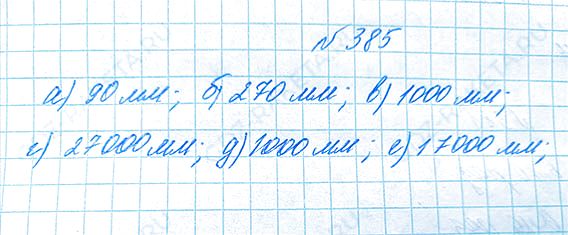 № 385
а) 90 мм; б) 270 мм; в) 1000 мм;
г) 27000 мм; д) 1000 мм; е) 17000 мм;